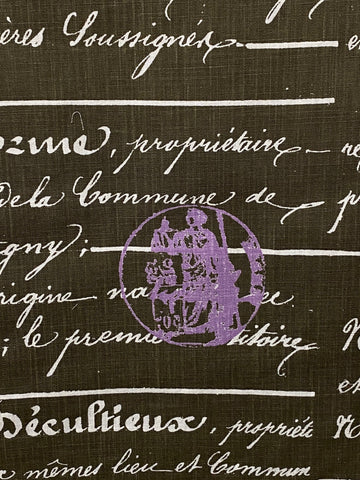 ères Soussignés e
orme, propriétaire re
De la Commune de p
gny;
rigine na ec
; le premie titoire N
et
Décultieux, propriété N
x mêmes lieu et Commun